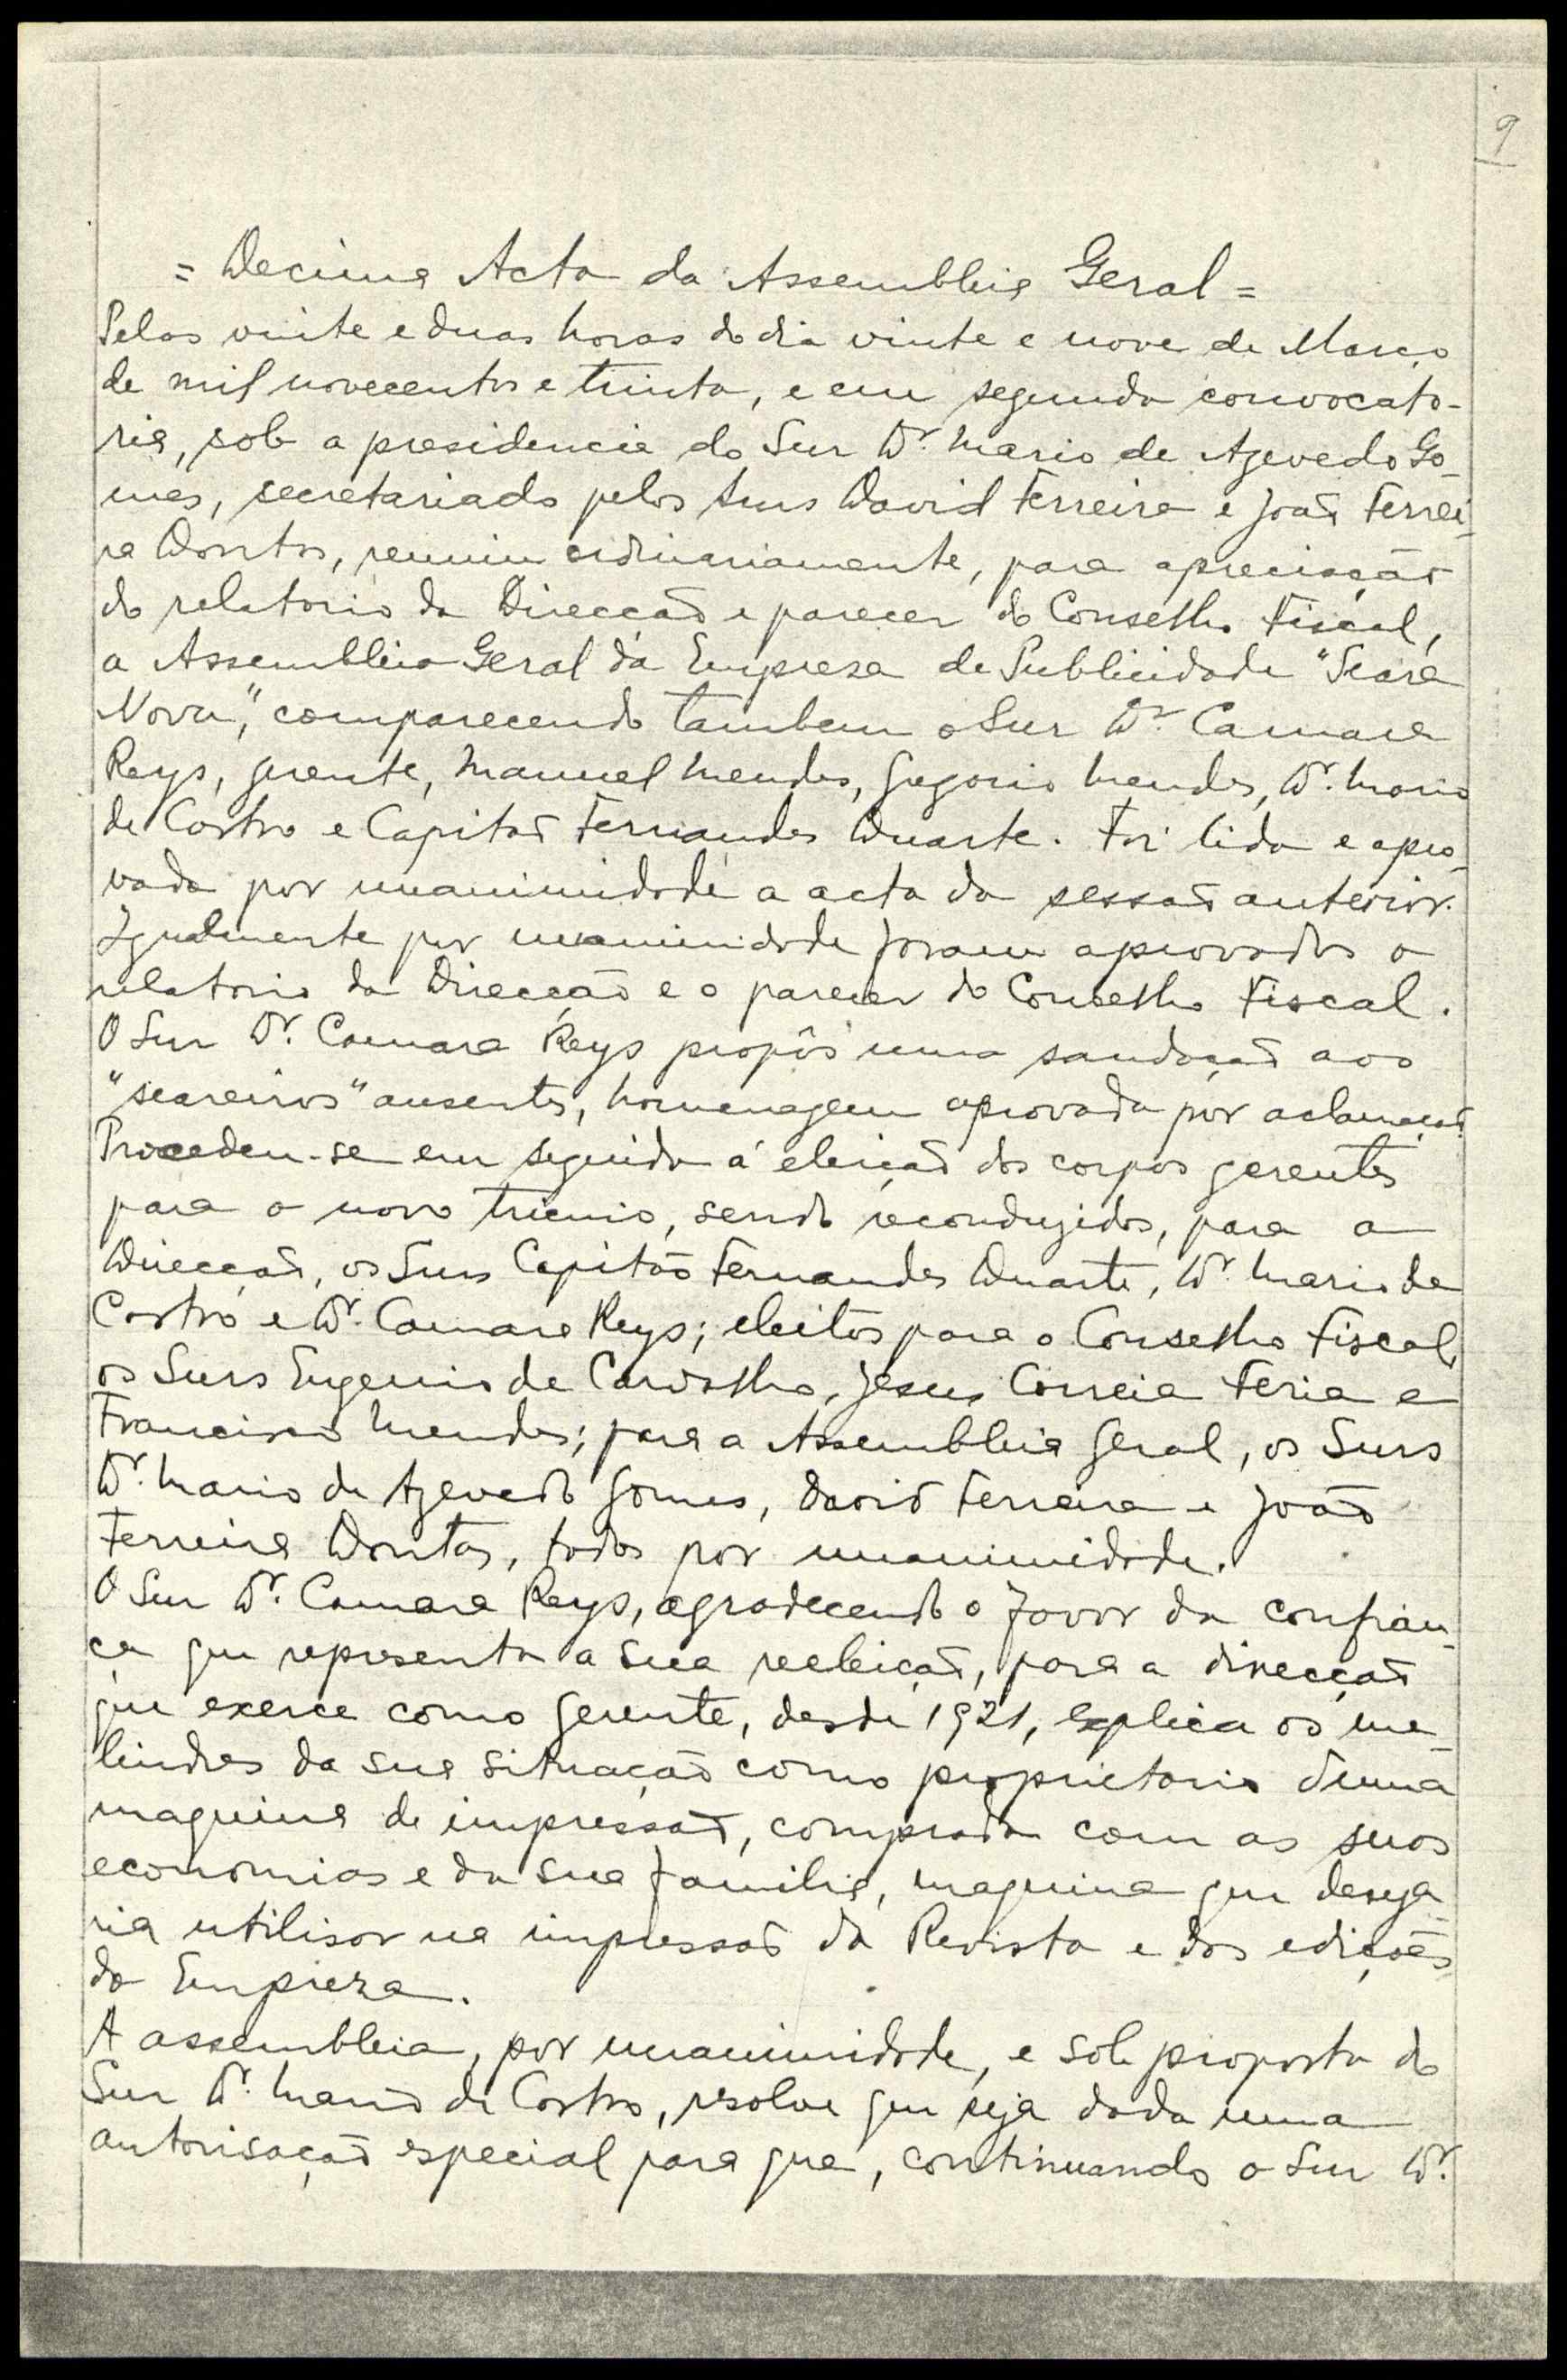 9
= Decima Acta da Assembleia Geral =
Pelas vinte e duas horas do dia vinte e nove de Março
de mil novecentos e trinta, e em segunda convocato-
ria, sob a presidencia do Snr Dr. Mario de Azevedo Go-
mes, secretariado pelos Snrs David Ferreira e João Ferrei-
ra Dontas, reuniu ordinariamente, para apreciação
do relatorio da Direcção e parecer do Conselho Fiscal,
a Assembleia Geral da Empreza de Publicidade "Seara
Nova", comparecendo tambem o Snr Dr. Camara
Reys, gerente, Manuel Mendes, Gregorio Mendes, Dr. Mario
de Castro e Capitão Fernandes Duarte. Foi lida e apro-
vada por unanimidade a acta da sessão anterior.
Igualmente por unanimidade foram aprovados o
relatorio da Direcção e o parecer do Conselho Fiscal.
O Snr Dr. Camara Reys propôs uma saudação aos
"seareiros" ausentes, homenagem aprovada por aclamação.
Procedeu-se em seguida á eleição dos corpos gerentes
para o novo trienio, sendo reconduzidos, para a
Direcção, os Snrs Capitão Fernandes Duarte, Dr. Mario de
Castro e Dr. Camara Reys; eleitos para o Conselho Fiscal,
os Snrs Eugenio de Carvalho, Jesus Correia Feria e
Francisco Mendes; para a Assembleia Geral, os Snrs
Dr. Mario de Azevedo Gomes, David Ferreira e João
Ferreira Dontas, todos por unanimidade.
O Snr Dr. Camara Reys, agradecendo o favor da confian-
ça que representa a sua reeleição, para a direcção
que exerce como gerente, desde 1921, explica os me-
lindres da sua situação como proprietario duma
maquina de impressão, comprada com as suas
economias e da sua familia, maquina que deseja-
ria utilisar na impressão da Revista e das edições
da Empreza.
A assembleia, por unanimidade, e sob proposta do
Snr Dr. Mario de Castro, resolve que seja dada uma
autorisação especial para que, continuando o Snr Dr.